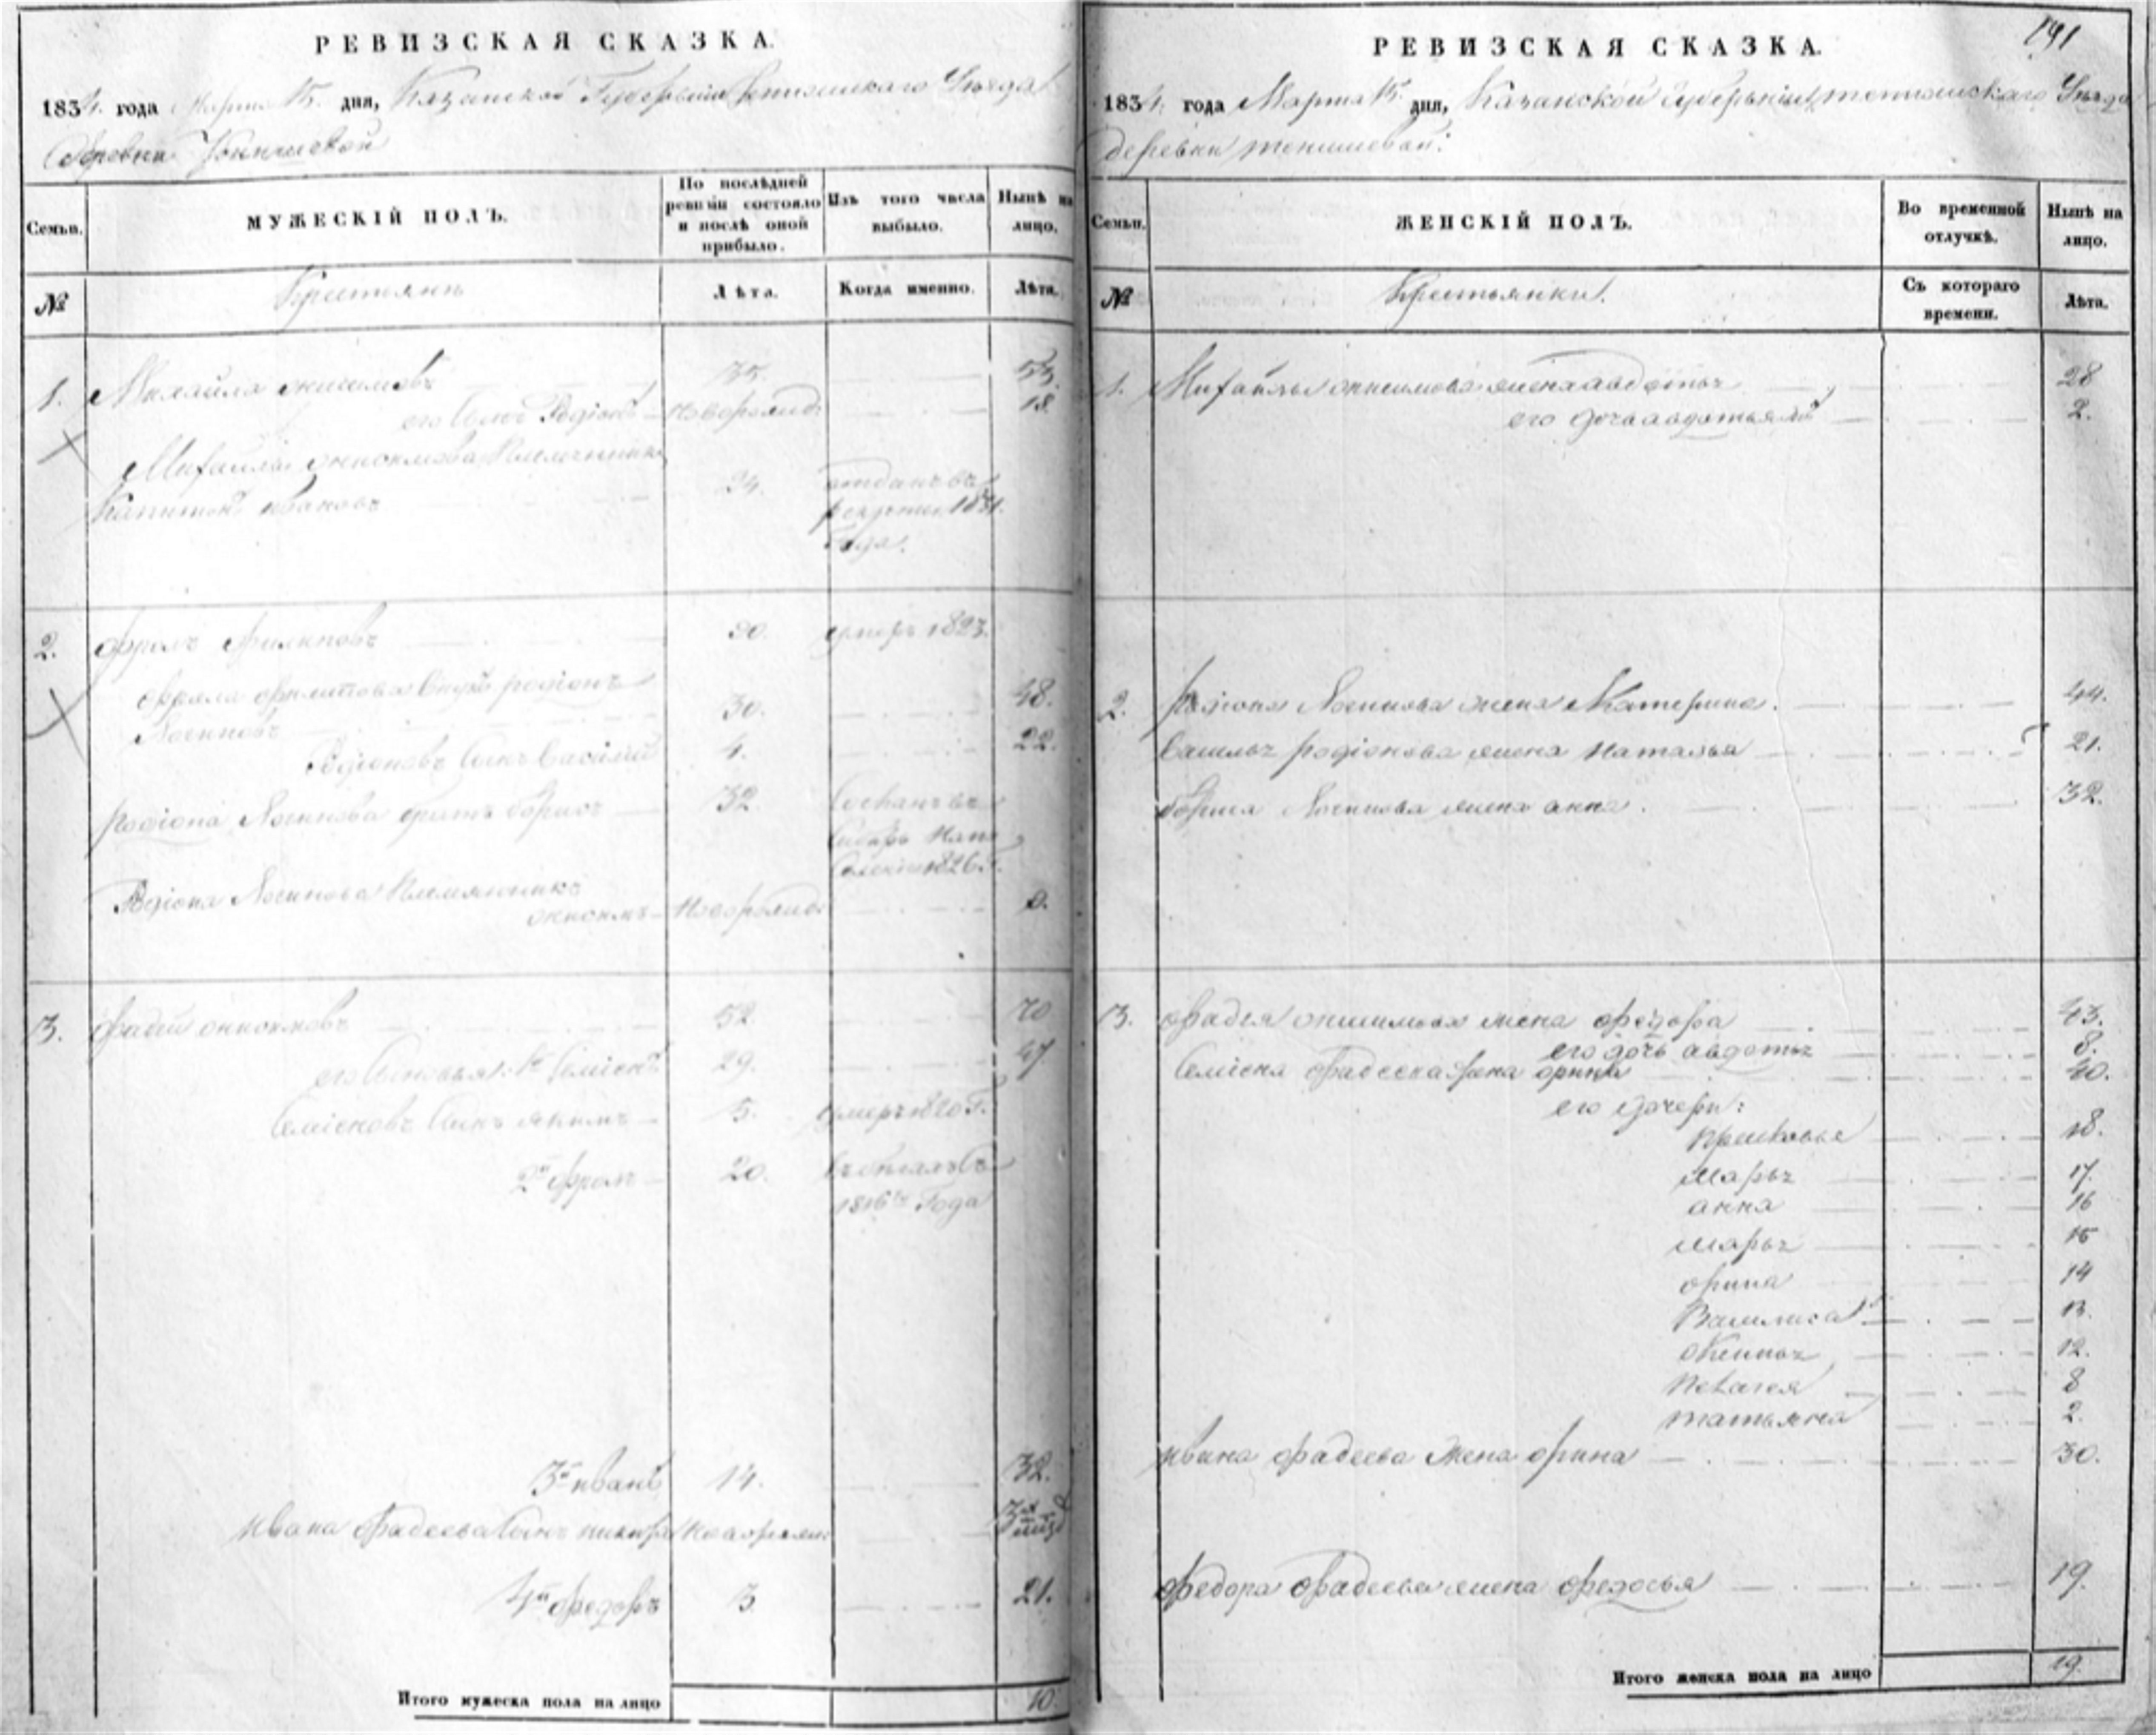 РЕВИЗСКАЯ СКАЗКА.
1834. года Марта 15. дня, Казанской Губернии Тетюшскаго Уезда
Деревни
Семьи.
МУЖЕСКІЙ ПОЛЪ.
По послѣдней ревизіи состояло и послѣ оной прибыло.
Изъ того числа выбыло.
Нынѣ на лицо.
№
Крестьянъ
Лѣта.
Когда именно.
Лѣта.
1. Михайла онисимовъ 35. 53.
его Сынъ Родіонъ новорожд 18.
Михайла онисимова Племянникъ
Капитонъ ивановъ 24. отданъ въ
рекруты 1831.
Года.
2. Фролъ Филиповъ умеръ 1823.
Фрола Филипова внукъ родіонъ
Логиновъ 30. 48.
Родіоновъ Сынъ Василий 4. 22.
Родіона Логинова братъ борисъ 32. Сосланъ въ
Сибирь На по
селеніе 1826 г.
Родіона Логинова Племянникъ
онисимъ новорожд 8.
3. Фадей онисимовъ 52. 70
его Сыновья: 1й Семіонъ 29. 47
Семіоновъ Сынъ якимъ 5. умеръ 1820 Г.
2й Фролъ 20. Въ бегахъ Съ
1816го Года
3й иванъ 14. 32.
ивана Фадеева Сынъ новорожд
4й Федоръ 3 21.
Итого мужеска пола на лицо 10.
191
РЕВИЗСКАЯ СКАЗКА.
1834. года Марта 15. дня, Казанской Губерніи, тетюшскаго Уезда
деревни тенишевой:
Семьи.
ЖЕНСКІЙ ПОЛЪ.
Во временной отлучкѣ.
Нынѣ на лицо.
№
Крестьянки.
Съ котораго времени.
Лѣта.
1. Михайлы онисимова жена авдотья 28
его дочь авдотья 2.
2. Родіона Логинова жена Катерина. 44.
Василья родіонова жена наталья 21.
бориса Логинова жена анна. 32.
3. Фадея онисимова жена Федора 43.
его дочь авдотья 8.
Семіона Фадеева жена орина 40.
его дочери:
прасковья 18.
марья 17.
анна 16
марья 15
орина 14
Василиса 13.
12.
Пелагея 8
татьяна 2.
ивана Фадеева жена орина 30.
Федора Фадеева жена Федосья 19.
Итого женска пола на лицо 19.